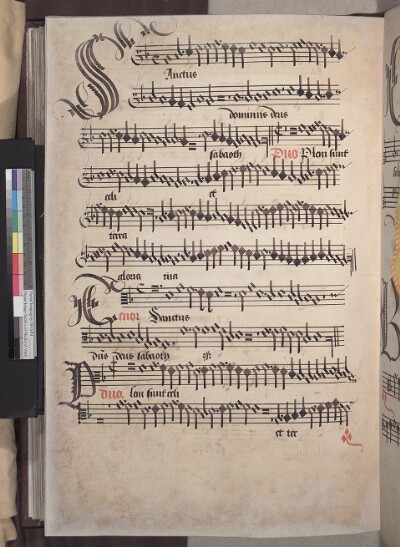 Sanctus
dominus deus
sabaoth Duo Pleni sunt
celi et
terra
gloria tua
Tenor Sanctus
dns deus sabaoth
Duo. leni sunt celi
et ter